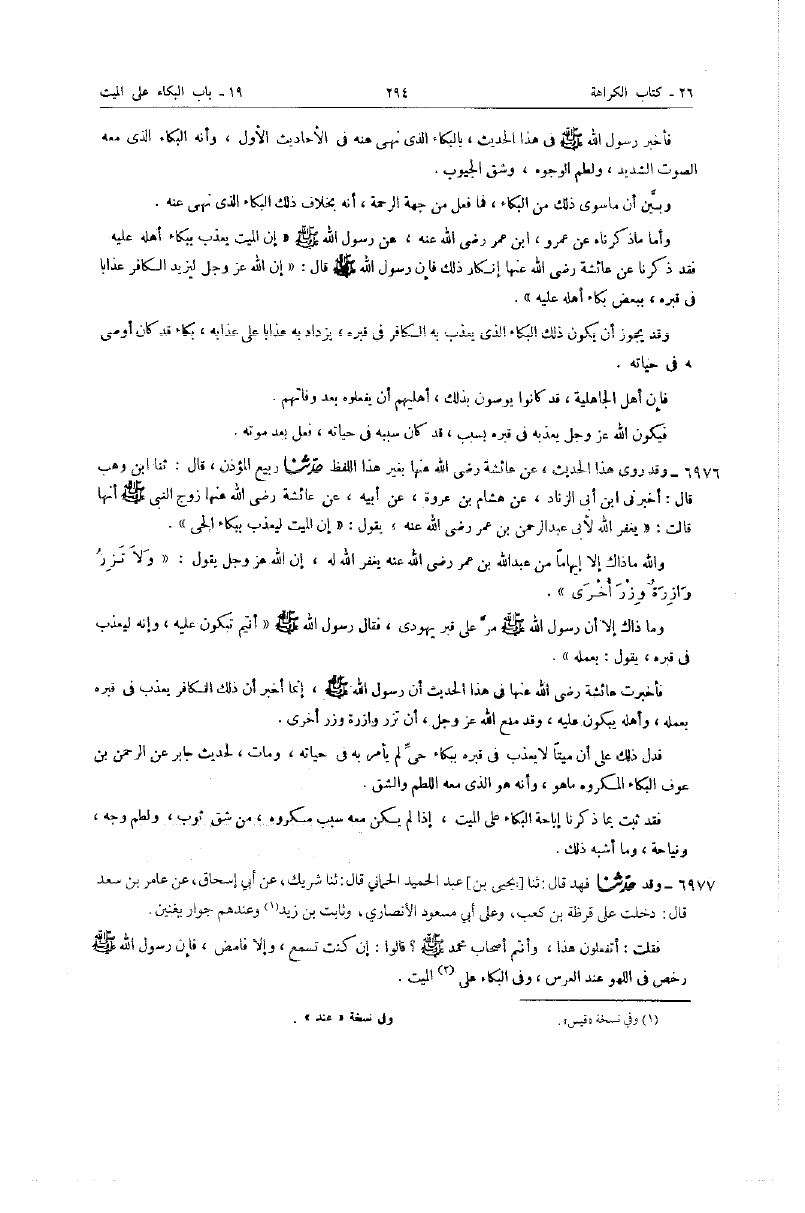 ٢٦ - كتاب الكراهة ٢٩٤ ١٩ - باب البكاء على الميت
فأخبر رسول الله ﷺ فى هذا الحديث ، بالبكاء الذى نهى عنه فى الأحاديث الأول ، وأنه البكاء الذى معه
الصوت الشديد ، ولطم الوجوه ، وشق الجيوب .
وبيَّن أن ماسوى ذلك من البكاء ، فما فعل من جهة الرحمة ، أنه بخلاف ذلك البكاء الذى نهى عنه .
وأما ماذكرناه عن عمرو ، ابن عمر رضى الله عنه ، عن رسول الله ﷺ « إن الميت يعذب ببكاء أهله عليه
فقد ذكرنا عن عائشة رضى الله عنها إنكار ذلك فإن رسول الله ﷺ قال : « إن الله عز وجل ليزيد الكافر عذابا
فى قبره ، ببعض بكاء أهله عليه » .
وقد يجوز أن يكون ذلك البكاء الذى يعذب به الكافر فى قبره ، يزداد به عذابا على عذابه ، بكاء قد كان أوصى
ه فى حياته .
فإن أهل الجاهلية ، قد كانوا يوصون بذلك ، أهليهم أن يفعلوه بعد وفاتهم .
فيكون الله عز وجل يعذبه فى قبره بسبب ، قد كان سببه فى حياته ، فعل بعد موته .
٦٩٧٦ - وقد روى هذا الحديث ، عن عائشة رضى الله عنها بغير هذا اللفظ حدثنا ربيع المؤذن ، قال : ثنا ابن وهب
قال : أخبرنى ابن أبى الزناد ، عن هشام بن عروة ، عن أبيه ، عن عائشة رضى الله عنها زوج النبى ﷺ أنها
قالت : « يغفر الله لأبى عبدالرحمن بن عمر رضى الله عنه ، يقول : « إن الميت ليعذب ببكاء الحى » .
والله ماذاك إلا إيهاماً من عبدالله بن عمر رضى الله عنه يغفر الله له ، إن الله عز وجل يقول : « وَلاَ تَزِرُ
وَازِرَةٌ وِزْرَ أُخْرَى » .
وما ذاك إلا أن رسول الله ﷺ مرَّ على قبر يهودى ، فقال رسول الله ﷺ « أنتم تبكون عليه ، وإنه ليعذب
فى قبره ، يقول : بعمله » .
فأخبرت عائشة رضى الله عنها فى هذا الحديث أن رسول الله ﷺ ، إنما أخبر أن ذلك الكافر يعذب فى قبره
بعمله ، وأهله يبكون عليه ، وقد منع الله عز وجل ، أن تزر وازرة وزر أخرى .
فدل ذلك على أن ميتاً لايعذب فى قبره ببكاء حىٍّ لم يأمر به فى حياته ، ومات ، لحديث جابر عن الرحمن بن
عوف البكاء المكروه ماهو ، وأنه هو الذى معه اللطم والشق .
فقد ثبت بما ذكرنا إباحة البكاء على الميت ، إذا لم يكن معه سبب مكروه ، من شق ثوب ، ولطم وجه ،
ونياحة ، وما أشبه ذلك .
٦٩٧٧ - وقد حدثنا فهد قال : ثنا [يحيى بن] عبد الحميد الحمانى قال : ثنا شريك ، عن أبي إسحاق ، عن عامر بن سعد
قال : دخلت على قرظة بن كعب ، وعلى أبي مسعود الأنصاري ، وثابت بن زيد(١) وعندهم جوار يغنين .
فقلت : أتفعلون هذا ، وأنتم أصحاب محمد ﷺ ؟ قالوا : إن كنت تسمع ، وإلا فامض ، فإن رسول الله ﷺ
رخص فى اللهو عند العرس ، وفى البكاء على (٢) الميت .
(١) وفي نسخة «قيس». وفى نسخة « عند » .